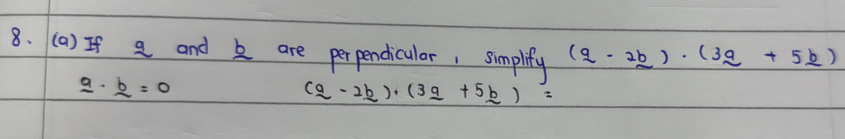 8. (a) If a and b are perpendicular, simplify (a - 2b) · (3a + 5b)
a · b = 0 (a - 2b) · (3a + 5b) =